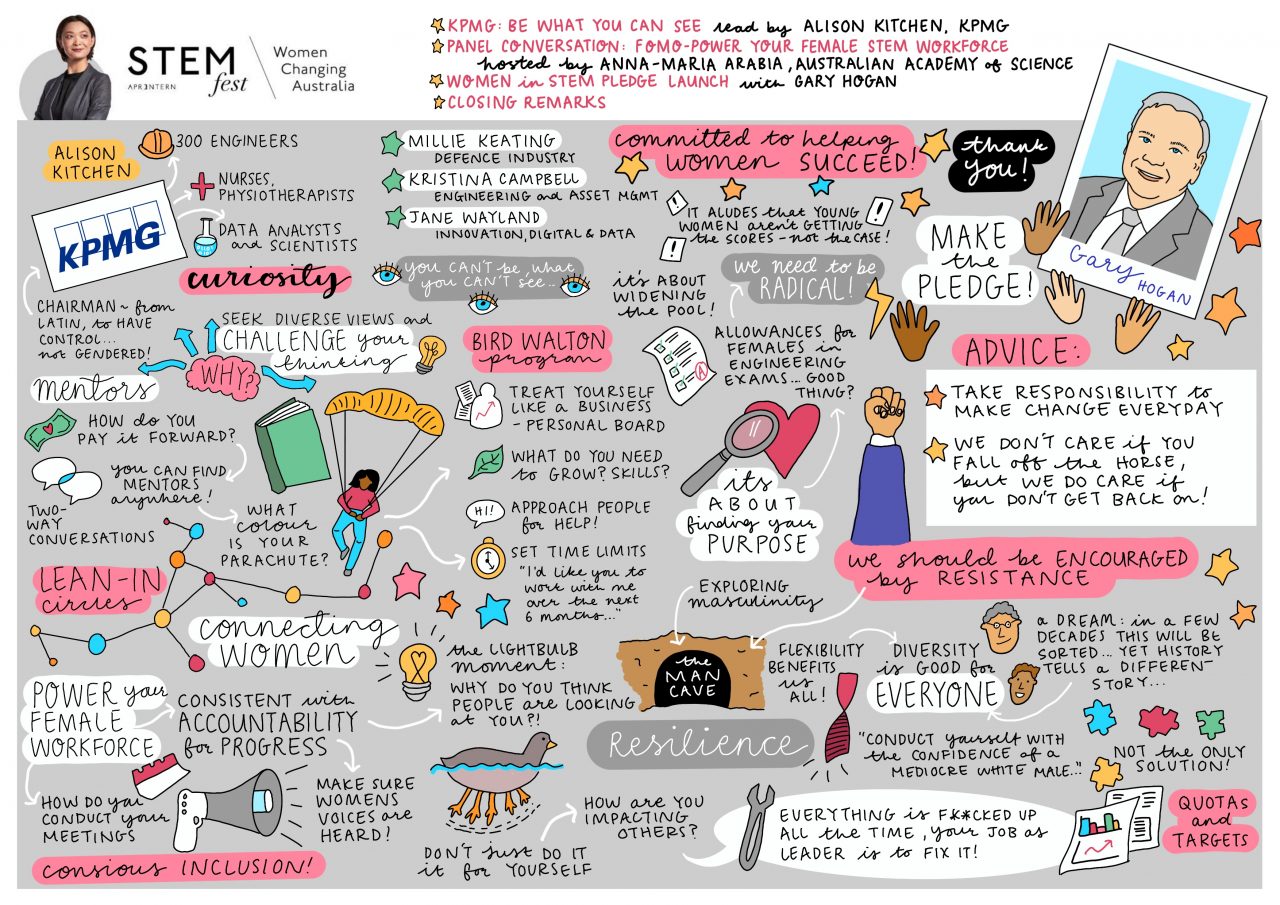 STEM
APR3NTERN
fest
Women
Changing
Australia
KPMG: BE WHAT YOU CAN SEE read by ALISON KITCHEN, KPMG
PANEL CONVERSATION: FOMO-POWER YOUR FEMALE STEM WORKFORCE
hosted by ANNA-MARIA ARABIA, AUSTRALIAN ACADEMY of SCIENCE
WOMEN in STEM PLEDGE LAUNCH with GARY HOGAN
CLOSING REMARKS
ALISON
KITCHEN
300 ENGINEERS
NURSES,
PHYSIOTHERAPISTS
DATA ANALYSTS
and SCIENTISTS
KPMG
curiosity
CHAIRMAN ~ from
LATIN, to HAVE
CONTROL...
not GENDERED!
SEEK DIVERSE VIEWS and
CHALLENGE your
thinking
WHY?
mentors
HOW do YOU
PAY it FORWARD?
you CAN FIND
MENTORS
anywhere!
TWO-
WAY
CONVERSATIONS
WHAT
colour
IS YOUR
PARACHUTE?
LEAN-IN
circles
connecting
WOMEN
POWER your
FEMALE
WORKFORCE
CONSISTENT with
ACCOUNTABILITY
for PROGRESS
HOW DO you
CONDUCT your
MEETINGS
MAKE SURE
WOMENS
VOICES are
HEARD!
consious INCLUSION!
MILLIE KEATING
DEFENCE INDUSTRY
KRISTINA CAMPBELL
ENGINEERING and ASSET MGMT
JANE WAYLAND
INNOVATION, DIGITAL & DATA
you CAN'T be, what
you CAN'T see...
BIRD WALTON
program
TREAT YOURSELF
LIKE a BUSINESS
- PERSONAL BOARD
WHAT DO YOU NEED
to GROW? SKILLS?
HI!
APPROACH PEOPLE
for HELP!
SET TIME LIMITS
"I'd LIKE YOU to
work with me
over the next
6 months..."
the LIGHTBULB
moment:
WHY DO YOU THINK
PEOPLE are LOOKING
at YOU?!
DON'T just DO IT
it for YOURSELF
HOW are YOU
IMPACTING
OTHERS?
committed to helping
WOMEN SUCCEED!
!
!
!
IT ALUDES that YOUNG
WOMEN aren't GETTING
the SCORES - not the CASE!
it's ABOUT
WIDENING
the POOL!
we need to be
RADICAL!
A
ALLOWANCES for
FEMALES in
ENGINEERING
EXAMS... GOOD
THING?
its
ABOUT
finding your
PURPOSE
EXPLORING
masculinity
the
MAN
CAVE
FLEXIBILITY
BENEFITS
us
ALL!
Resilience
thank
you!
MAKE
the
PLEDGE!
Gary
HOGAN
ADVICE:
TAKE RESPONSIBILITY to
MAKE CHANGE EVERYDAY
WE DON'T CARE if YOU
FALL off the HORSE,
but WE DO CARE if
you DON'T GET BACK on!
we should be ENCOURAGED
by RESISTANCE
DIVERSITY
is GOOD for
EVERYONE
a DREAM: in a FEW
DECADES THIS WILL BE
SORTED... YET HISTORY
TELLS a DIFFEREN-
STORY...
"CONDUCT yourself WITH
the CONFIDENCE of a
MEDIOCRE WHITE MALE..."
NOT the ONLY
SOLUTION!
EVERYTHING is F**CKED UP
ALL the TIME, your JOB as
LEADER is to FIX IT!
QUOTAs
and
TARGETS